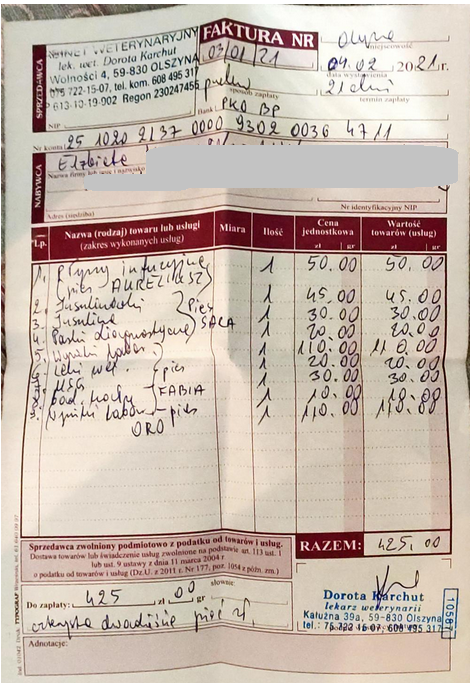 GABINET WETERYNARYJNY
lek. wet. Dorota Karchut
Wolności 4, 59-830 OLSZYNA
075 722-15-07, tel. kom. 608 495 317
613-10-19-902 Regon 230247455
SPRZEDAWCA
NIP
FAKTURA NR
03/01/21
Olszyna
miejscowość
04.02 2021 r.
data wystawienia
przelew
21 dni
sposób zapłaty
termin zapłaty
Bank PKO BP
Nr konta 25 1020 2137 0000 9302 0036 4711
NABYWCA
Elżbieta
Nazwa firmy lub imię i nazwisko
Adres (siedziba)
Nr identyfikacyjny NIP
Lp. Nazwa (rodzaj) towaru lub usługi (zakres wykonanych usług) Miara Ilość Cena jednostkowa zł gr Wartość towarów (usług) zł gr
1. Płyny infuzyjne 1 50.00 50.00
pies AURELIUSZ
2. Insulinówki 1 45.00 45.00
3. Insulina 1 30.00 30.00
pies SABA
4. Paski diagnostyczne 1 20.00 20.00
5. Wyniki labor. 1 110.00 110.00
Leki wet. 1 20.00 20.00
USG 1 30.00 30.00
pies FABIA
bad. kochy 1 10.00 10.00
Wyniki labor - pies 1 110.00 110.00
ORO
Sprzedawca zwolniony podmiotowo z podatku od towarów i usług.
Dostawa towarów lub świadczenie usług zwolnione na podstawie art. 113 ust. 1
lub ust. 9 ustawy z dnia 11 marca 2004 r.
o podatku od towarów i usług (Dz.U. z 2011 r. Nr 177, poz. 1054 z późn. zm.)
RAZEM: 425,00
Do zapłaty: 425 zł 00 gr słownie:
czterysta dwadzieścia pięć zł.
Dorota Karchut
lekarz weterynarii
Kałużna 39a, 59-830 Olszyna
tel.: 75 722 15 07, 608 495 317
10587
Adnotacje:
TYPOGRAF